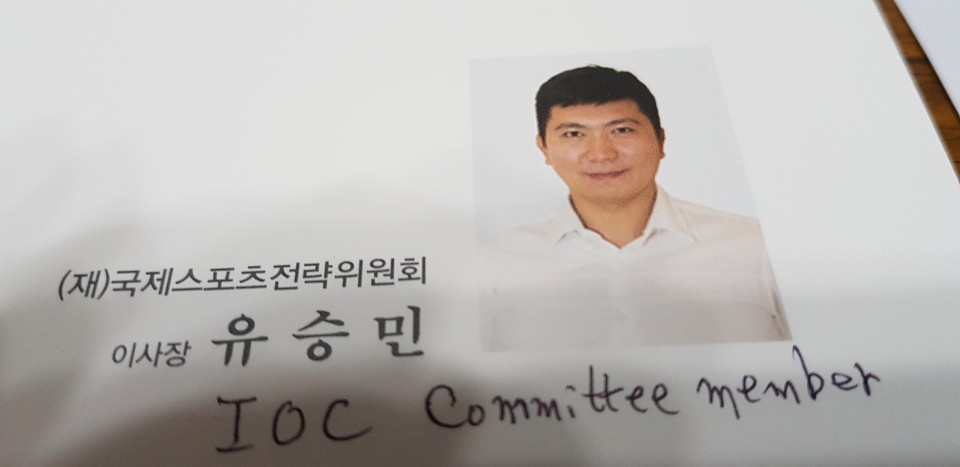 (재)국제스포츠전략위원회
이사장 유승민
IOC Committee member